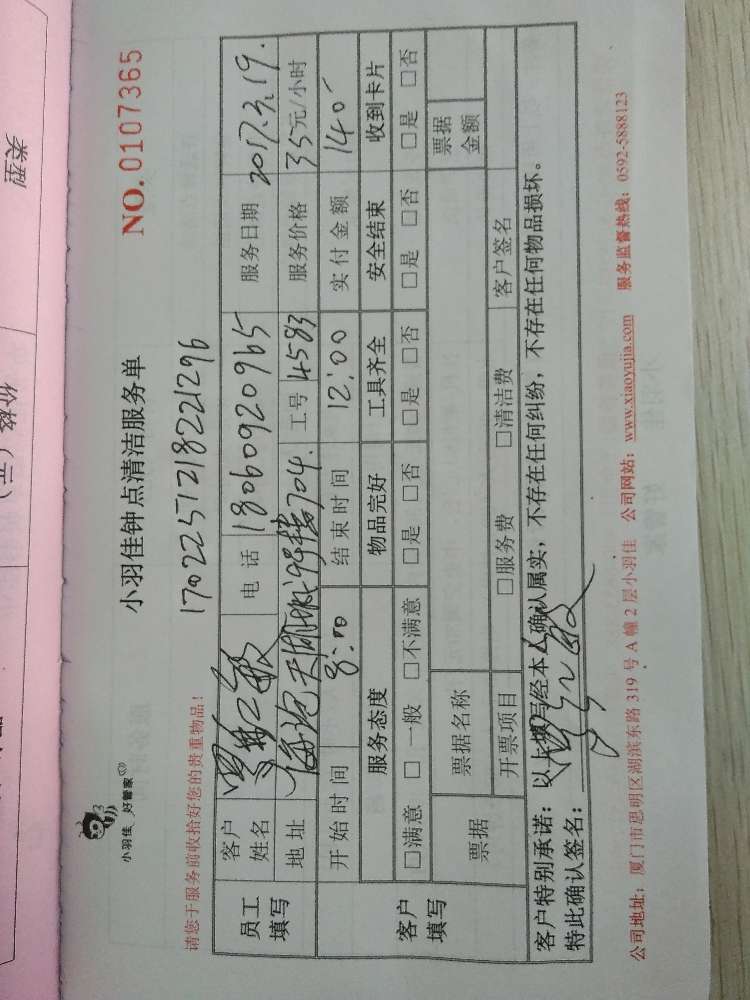 小羽佳 好管家
小羽佳钟点清洁服务单
NO.0107365
170225121821296
请您于服务前收拾好您的贵重物品！
员工填写
客户姓名
电话 18060920965
服务日期 2017.3.19.
地址 704.
工号 4583
服务价格 35元/小时
客户填写
开始时间 8:00 结束时间 12:00 实付金额 140
服务态度 物品完好 工具齐全 安全结束 收到卡片
□满意 □一般 □不满意 □是 □否 □是 □否 □是 □否 □是 □否
票据 票据名称 票据金额
开票项目 □服务费 □清洁费 客户签名
客户特别承诺：以上填写经本人确认属实，不存在任何纠纷，不存在任何物品损坏。
特此确认签名：
公司地址：厦门市思明区湖滨东路319号A幢2层小羽佳 公司网站：www.xiaoyujia.com 服务监督热线：0592-5888123
类型
价格（元）